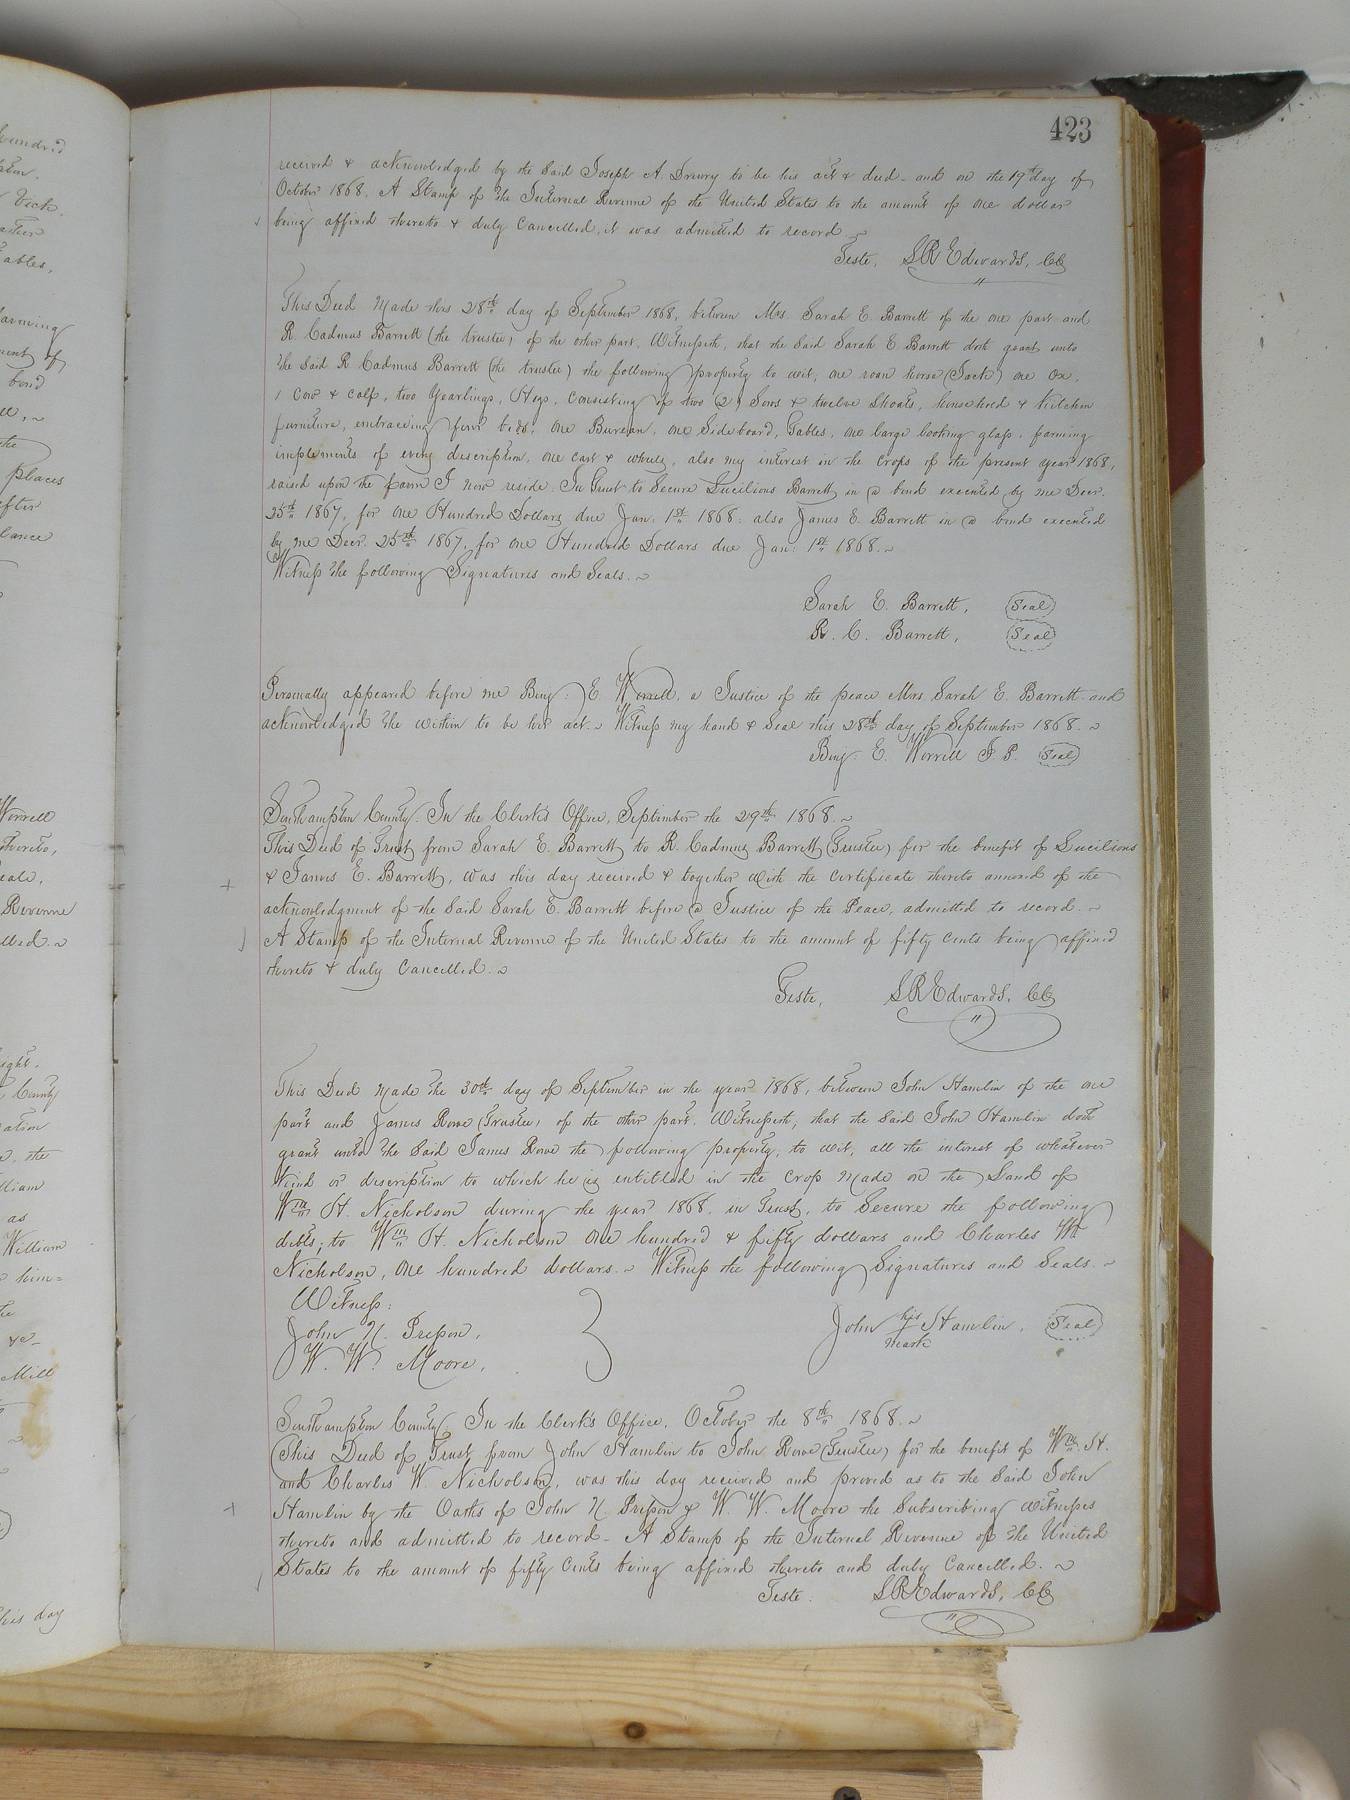 423
received & acknowledged by the said Joseph A. Drewry to be his act & deed - and on the 19th day of
October 1868. A Stamp of the Internal Revenue of the United States to the amount of one dollar
being affixed thereto & duly Cancelled, it was admitted to record ~
Teste, LR Edwards, CC
This Deed Made this 28th day of September 1868, between Mrs. Sarah E. Barrett of the one part and
R. Cadmus Barrett (the trustee) of the other part. Witnesseth, that the said Sarah E Barrett doth grant unto
the said R Cadmus Barrett (the trustee) the following property to wit; one roan horse (Jack) one Ox,
1 Cow & calf, two Yearlings, Hogs, Consisting of two (2) Sows & twelve Shoats, household & Kitchen
furniture, embracing four beds, one Bureau, one Sideboard, Tables, one large looking glass, farming
implements of every description, one cart & wheels, also my interest in the Crops of the present year 1868,
raised upon the farm I now reside. In Trust to Secure Lucilious Barrett in a bond executed by me Decr.
25th 1867, for one Hundred Dollars due Jan. 1st 1868. also James E. Barrett in a bond executed
by me Decr. 25th 1867, for one Hundred Dollars due Jan. 1st 1868. ~
Witness the following Signatures and Seals. ~
Sarah E. Barrett, Seal
R. C. Barrett, Seal
Personally appeared before me Benj. E Worrell, a Justice of the peace Mrs. Sarah E. Barrett and
acknowledged the within to be her act. ~ Witness my hand & Seal this 28th day of September 1868. ~
Benj. E. Worrell J. P. Seal
Southampton County. In the Clerk's Office, September the 29th 1868. ~
This Deed of Trust from Sarah E. Barrett to R. Cadmus Barrett (Trustee) for the benefit of Lucilious
& James E. Barrett, was this day received & together with the certificate thereto annexed of the
acknowledgment of the said Sarah E. Barrett before a Justice of the Peace, admitted to record. ~
A Stamp of the Internal Revenue of the United States to the amount of fifty cents being affixed
thereto & duly Cancelled. ~
Teste, LR Edwards, CC
This Deed Made the 30th day of September in the year 1868, between John Hamlin of the one
part and James Rowe (Trustee) of the other part. Witnesseth, that the said John Hamlin doth
grant unto the said James Rowe the following property, to wit; all the interest of whatever
kind or description to which he is entitled in the crop made on the Land of
Wm H. Nicholson during the year 1868, in Trust, to Secure the following
debts; to Wm H. Nicholson One hundred & fifty dollars and Charles W
Nicholson, One hundred dollars. ~ Witness the following Signatures and Seals. ~
Witness:
John N. Presson,
W. W. Moore.
John his Hamlin, Seal
mark
Southampton County, In the Clerk's Office, October the 8th 1868. ~
This Deed of Trust from John Hamlin to John Rowe (Trustee) for the benefit of Wm H.
and Charles W. Nicholson, was this day received and proved as to the said John
Hamlin by the Oaths of John N. Presson & W. W. Moore the Subscribing witnesses
thereto and admitted to record - A Stamp of the Internal Revenue of the United
States to the amount of fifty Cents being affixed thereto and duly Cancelled. ~
Teste. LR Edwards, CC